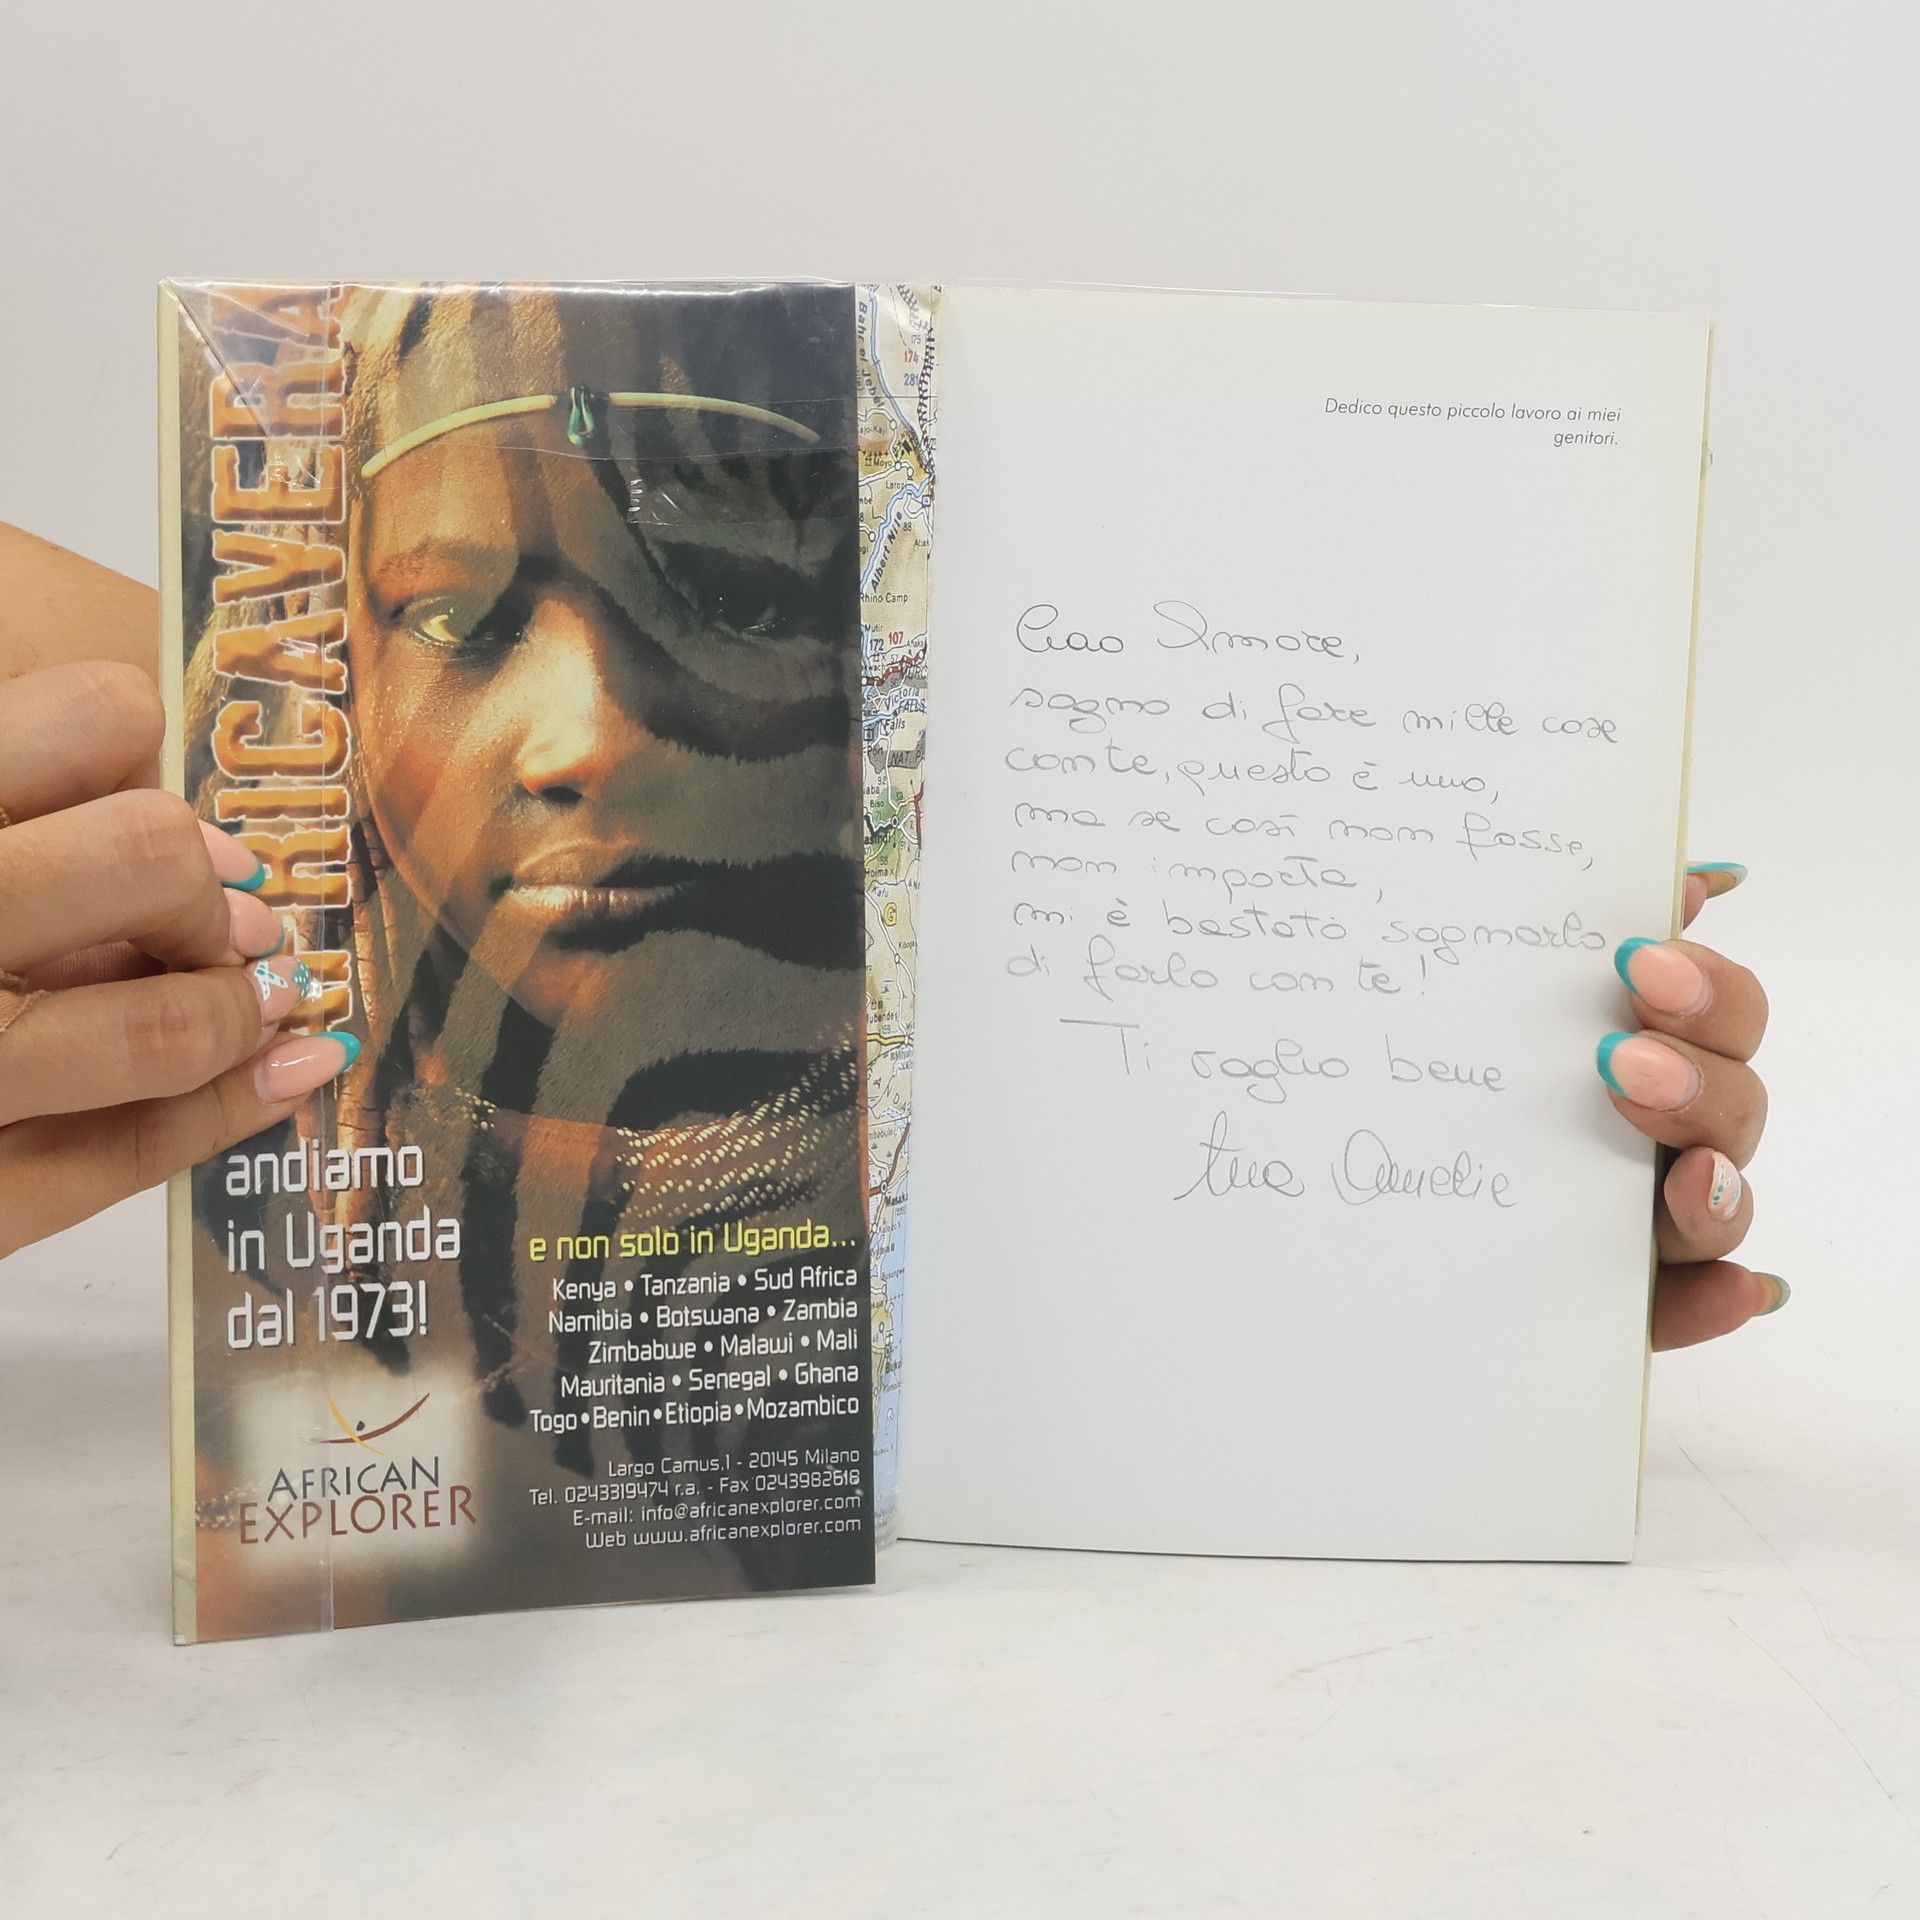 AFRICAVERA
andiamo
in Uganda
dal 1973!
e non solo in Uganda...
Kenya • Tanzania • Sud Africa
Namibia • Botswana • Zambia
Zimbabwe • Malawi • Mali
Mauritania • Senegal • Ghana
Togo • Benin • Etiopia • Mozambico
AFRICAN
EXPLORER
Largo Camus,1 - 20145 Milano
Tel. 0243319474 r.a. - Fax 0243982618
E-mail: info@africanexplorer.com
Web www.africanexplorer.com
Bahr el Jebel
175
174
281
Moyo
Albert Nile
88
Rhino Camp
107
172
Victoria
Falls
Hoima
Kafu
Dedico questo piccolo lavoro ai miei
genitori.
Ciao Amore,
sogno di fare mille cose
con te, questo è uno,
ma se così non fosse,
non importa,
mi è bastato sognarlo
di farlo con te!
Ti voglio bene
tua Amelie